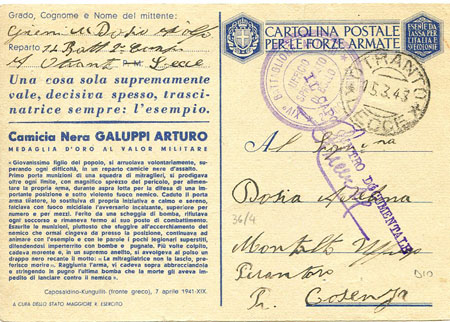 Grado, Cognome e Nome del mittente:
Reparto
Otranto Lecce
Una cosa sola supremamente
vale, decisiva spesso, trasci-
natrice sempre: l'esempio.
Camicia Nera GALUPPI ARTURO
MEDAGLIA D'ORO AL VALOR MILITARE
«Giovanissimo figlio del popolo, si arruolava volontariamente, su-
perando ogni difficoltà, in un reparto camicie nere d'assalto.
Primo porta munizioni di una squadra di mitraglieri, si prodigava
oltre ogni limite, con magnifico sprezzo del pericolo, per alimen-
tare la propria arma, durante aspra lotta per la difesa di una im-
portante posizione e sotto violento fuoco nemico. Caduto il porta
arma tiratore, lo sostituiva di propria iniziativa e calmo e sereno,
falciava con fuoco micidiale l'avversario incalzante, superiore per
numero e per mezzi. Ferito da una scheggia di bomba, rifiutava
ogni soccorso e rimaneva fermo al suo posto di combattimento.
Esaurite le munizioni, piuttosto che sfuggire all'accerchiamento del
nemico che ormai cingeva da presso la posizione, continuava ad
animare con l'esempio e con le parole i pochi legionari superstiti,
difendendosi imperterrito con bombe e pugnale. Più volte colpito,
cadeva morente e, in un supremo anelito, si avvolgeva al polso un
drappo nero recante il motto: «Le mitragliatrice non la lascio, pre-
ferisco morire». Raggiunta l'arma, vi cadeva sopra abbracciandola
e stringendo in pugno l'ultima bomba che la morte gli aveva impe-
dito di lanciare contro il nemico».
Caposaldino-Kungulli (fronte greco), 7 aprile 1941-XIX.
A CURA DELLO STATO MAGGIORE R. ESERCITO
CARTOLINA POSTALE
PER LE FORZE ARMATE
ESENTE DA
TASSA PER
L'ITALIA E
LE COLONIE
OTRANTO
15.3.43
LECCE
Al
Montalto Uffugo
Pr. Cosenza
36/4